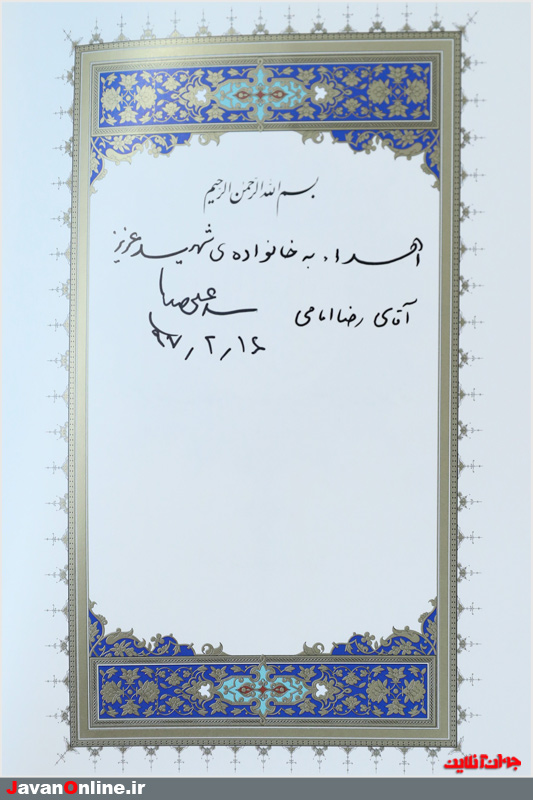 بسم الله الرحمن الرحیم
اهداء به خانواده‌ی شهید عزیز
آقای رضا امامی
۹۷/۲/۱۶
جوان آنلاین
JavanOnline.ir